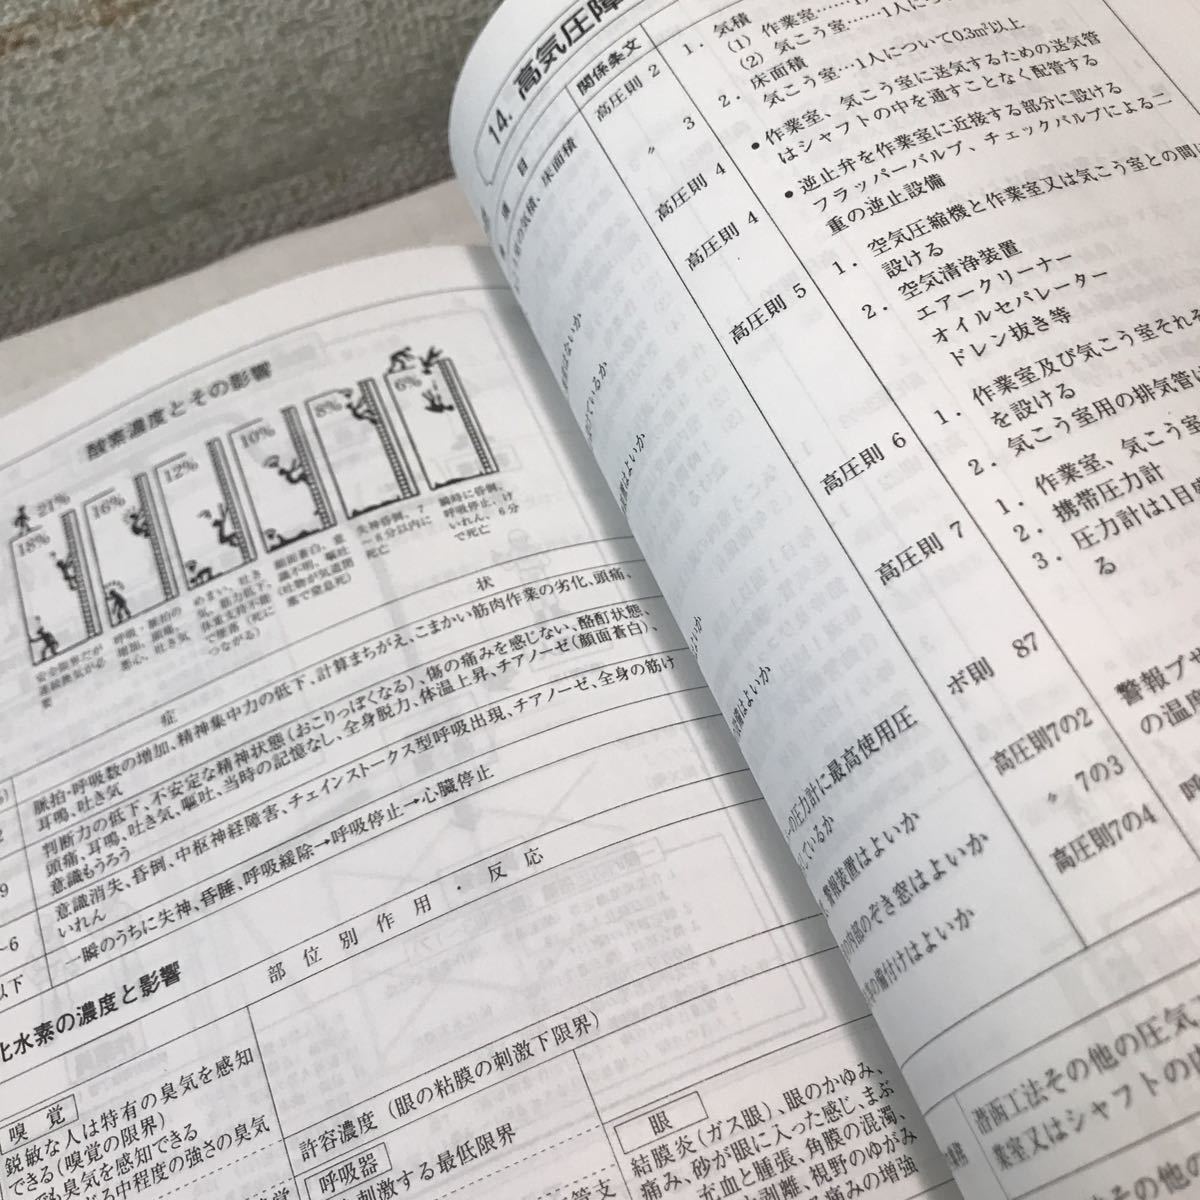 酸素濃度とその影響
21%
18%
16%
12%
10%
8%
6%
安全限界だが
連続換気が必
要
呼吸・脈拍の
増加、頭痛、
悪心、吐き気
めまい、吐き
気、筋力低下、
体重支持不能
で墜落（死に
つながる）
顔面蒼白、意
識不明、嘔吐
（吐物が気道閉
塞で窒息死）
失神昏倒、7
～8分以内に
死亡
瞬時に昏倒、
呼吸停止、け
いれん、6分
で死亡
症 状
脈拍・呼吸数の増加、精神集中力の低下、計算まちがえ、こまかい筋肉作業の劣化、頭痛、
耳鳴、吐き気
判断力の低下、不安定な精神状態（おこりっぽくなる）、傷の痛みを感じない、酩酊状態、
頭痛、耳鳴、吐き気、嘔吐、当時の記憶なし、全身脱力、体温上昇、チアノーゼ（顔面蒼白）、
意識もうろう
9
意識消失、昏倒、中枢神経障害、チェインストークス型呼吸出現、チアノーゼ、全身の筋け
いれん
～6
一瞬のうちに失神、昏睡、呼吸緩除→呼吸停止→心臓停止
以下
化水素の濃度と影響
部位別作用・反応
嗅覚
鋭敏な人は特有の臭気を感知
できる（嗅覚の限界）
でも臭気を感知できる
る中程度の強さの臭気
許容濃度（眼の粘膜の刺激下限界）
呼吸器
刺激する最低限界
眼
結膜炎（ガス眼）、眼のかゆみ、
痛み、砂が眼に入った感じ、まぶ
充血と腫張、角膜の混濁、
剥離、視野のゆがみ
痛みの増強
14. 高気圧障
関係条文
高圧則 2
〃 3
高圧則 4
高圧則 4
高圧則 5
高圧則 6
高圧則 7
ボ則 87
高圧則7の2
〃 7の3
高圧則7の4
1. 気積
(1) 作業室
(2) 気こう室……1人につ
2. 床面積
気こう室…1人について0.3m²以上
● 作業室、気こう室に送気するための送気管
はシャフトの中を通すことなく配管する
● 逆止弁を作業室に近接する部分に設ける
フラッパーバルブ、チェックバルブによる二
重の逆止設備
1. 空気圧縮機と作業室又は気こう室との間に
設ける
2. 空気清浄装置
エアークリーナー
オイルセパレーター
ドレン抜き等
1. 作業室及び気こう室それぞ
を設ける
2. 気こう室用の排気管は
1. 作業室、気こう室
2. 携帯圧力計
3. 圧力計は1目盛
る
警報ブザ
の温度
項目
気積、床面積
はないか
ているか
はよいか
の圧力計に最高使用圧
しているか
警報装置はよいか
内部のぞき窓はよいか
備付けはよいか
潜函工法その他の圧気
業室又はシャフトの内